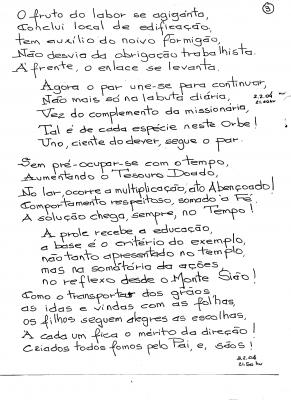 ③
O fruto do labor se agiganta,
Conclui local de edificação,
tem auxílio do noivo formigão,
Não desvia da obrigação trabalhista.
A frente, o enlace se levanta.
Agora o par une-se para continuar,
Não mais só na labuta diária,
Vez do complemento da missionária,
Tal é de cada espécie neste Orbe!
Uno, ciente do dever, segue o par.
2.2.04
Sem pré-ocupar-se com o tempo,
Aumentando o Tesouro Doado,
No lar, ocorre a multiplicação, ato Abençoado!
Comportamento respeitoso, somado a Fé
A solução chega, sempre, no Tempo!
A prole recebe a educação,
a base é o critério do exemplo,
não tanto apresentado no templo,
mas na somatória da ações,
no reflexo desde o Monte Sião!
Como o transportar dos grãos
as idas e vindas com as folhas,
os filhos seguem alegres as escolhas,
A cada um fica o mérito da direção!
Criados todos fomos pelo Pai, e, sãos!
2.2.04
21:50 hs